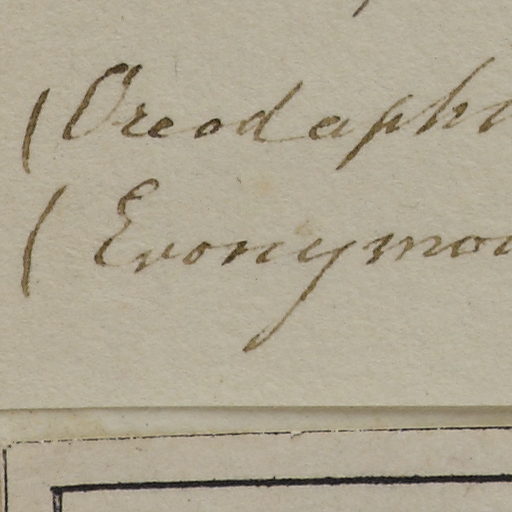 (Oreodaph
( Evonymo